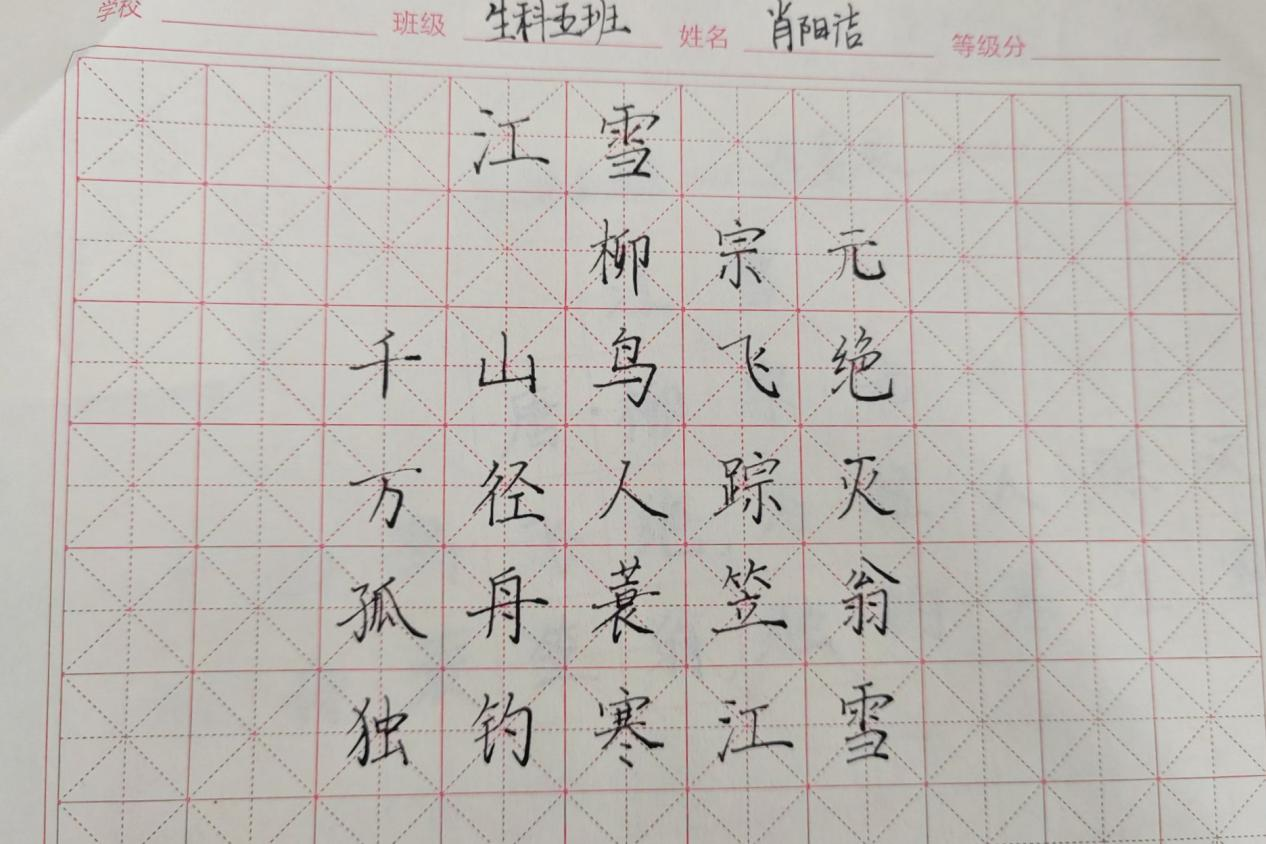 学校 班级 生科五班 姓名 肖阳洁 等级分
江雪
柳宗元
千山鸟飞绝
万径人踪灭
孤舟蓑笠翁
独钓寒江雪